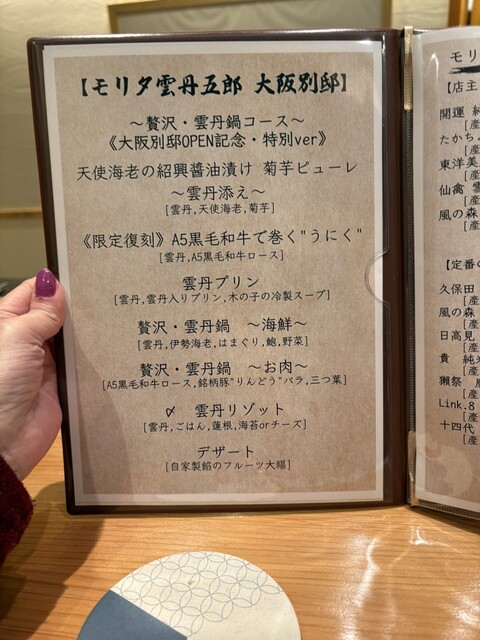 【モリタ雲丹五郎 大阪別邸】
～贅沢・雲丹鍋コース～
《大阪別邸OPEN記念・特別ver》
天使海老の紹興醬油漬け 菊芋ピューレ
～雲丹添え～
[雲丹,天使海老,菊芋]
《限定復刻》A5黒毛和牛で巻く"うにく"
[雲丹,A5黒毛和牛ロース]
雲丹プリン
[雲丹,雲丹入りプリン,木の子の冷製スープ]
贅沢・雲丹鍋 ～海鮮～
[雲丹,伊勢海老,はまぐり,鮑,野菜]
贅沢・雲丹鍋 ～お肉～
[A5黒毛和牛ロース,銘柄豚"りんどう"バラ,三つ葉]
〆 雲丹リゾット
[雲丹,ごはん,蓮根,海苔orチーズ]
デザート
[自家製餡のフルーツ大福]
モリ
【店主
開運
[産
たかち
[産
東洋美
[産
仙禽
[産
風の森
[産
【定番の
久保田
[産
風の森
[産
日高見
[産
貴 純
[産
獺祭
[産
Link.8
[産
十四代
[産